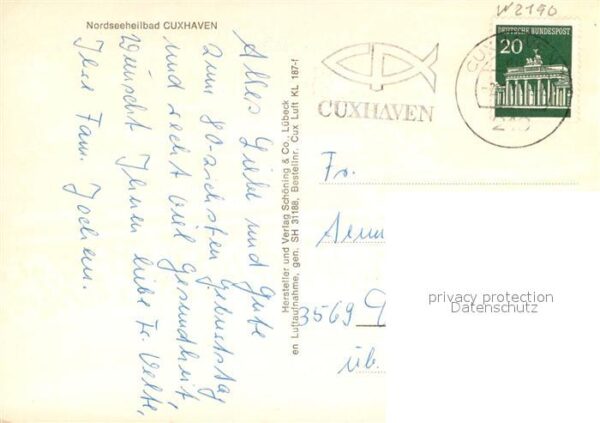 Nordseeheilbad CUXHAVEN
Alles Liebe und Gute
zum 80-zichsten Geburtstag
und recht viel Gesundheit,
wünscht Ihnen liebe Fr. Velte,
Ihre Fam. Jochem.
Hersteller und Verlag Schöning & Co., Lübeck
en Luftaufnahme, gen. SH 31188, Bestellnr. Cux Luft KL 187-f
W2190
DEUTSCHE BUNDESPOST
20
CUXHAVEN
Fr.
3569
üb.
privacy protection
Datenschutz